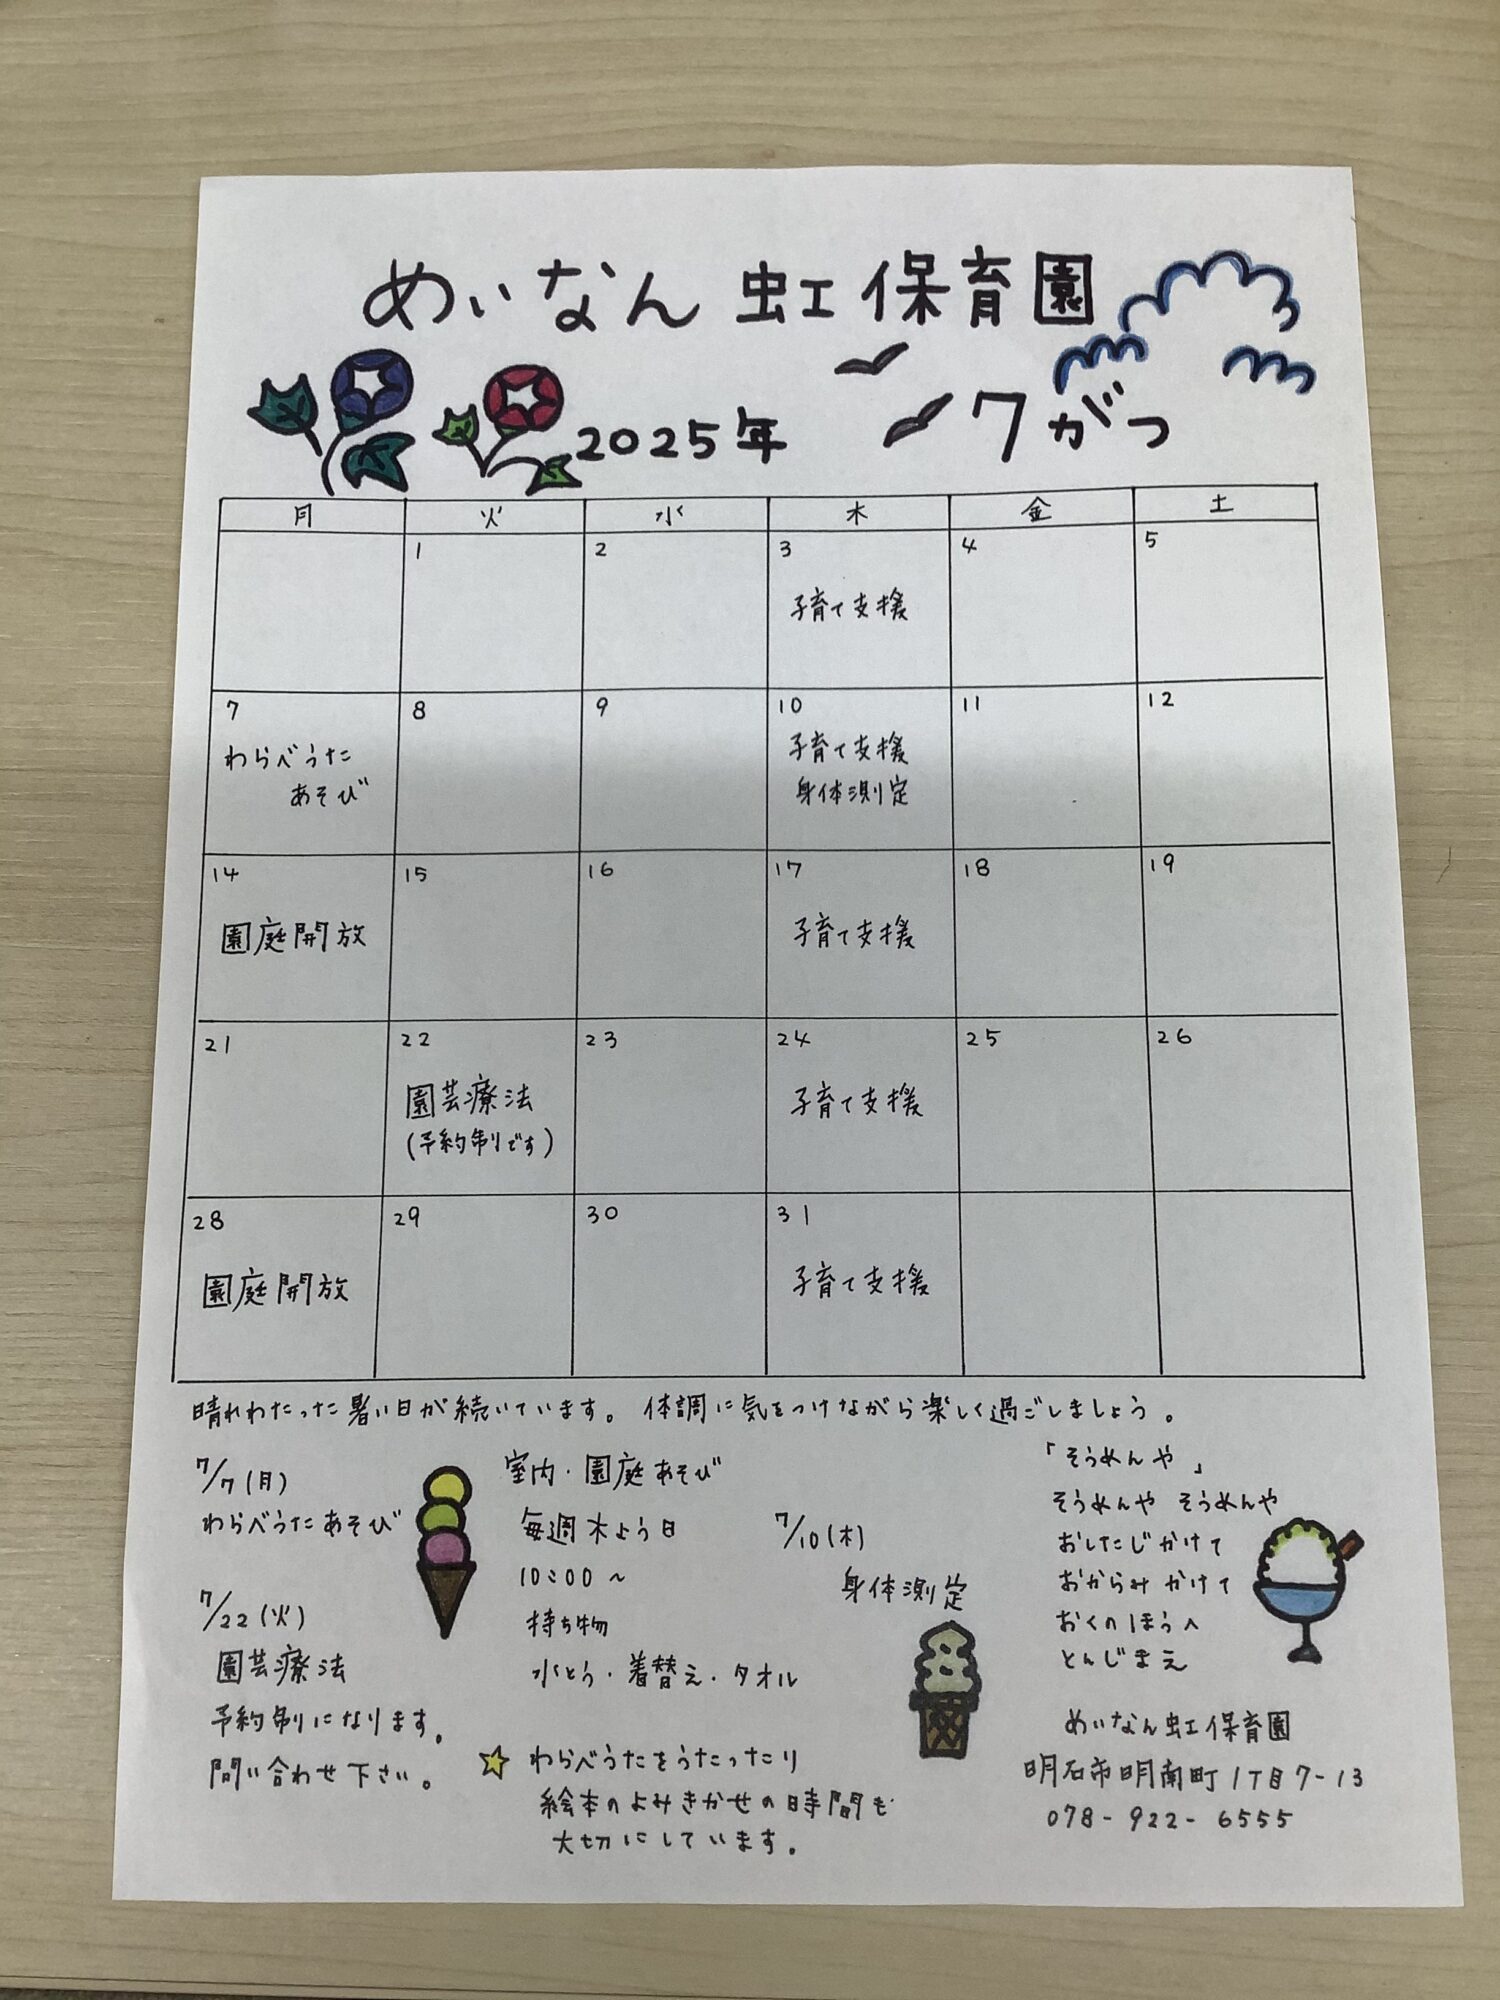 めいなん虹保育園
2025年 7がつ
月 火 水 木 金 土
1 2 3 4 5
子育て支援
7 8 9 10 11 12
わらべうた
あそび
子育て支援
身体測定
14 15 16 17 18 19
園庭開放 子育て支援
21 22 23 24 25 26
園芸療法
(予約制です)
子育て支援
28 29 30 31
園庭開放 子育て支援
晴れわたった暑い日が続いています。体調に気をつけながら楽しく過ごしましょう。
7/7(月)
わらべうたあそび
7/22(火)
園芸療法
予約制になります。
問い合わせ下さい。
室内・園庭あそび
毎週木よう日
10:00～
持ち物
水とう・着替え・タオル
7/10(木)
身体測定
☆わらべうたをうたったり
絵本のよみきかせの時間も
大切にしています。
「そうめんや」
そうめんや そうめんや
おしたじかけて
おからみかけて
おくのほうへ
とんじまえ
めいなん虹保育園
明石市明南町1丁目7-13
078-922-6555